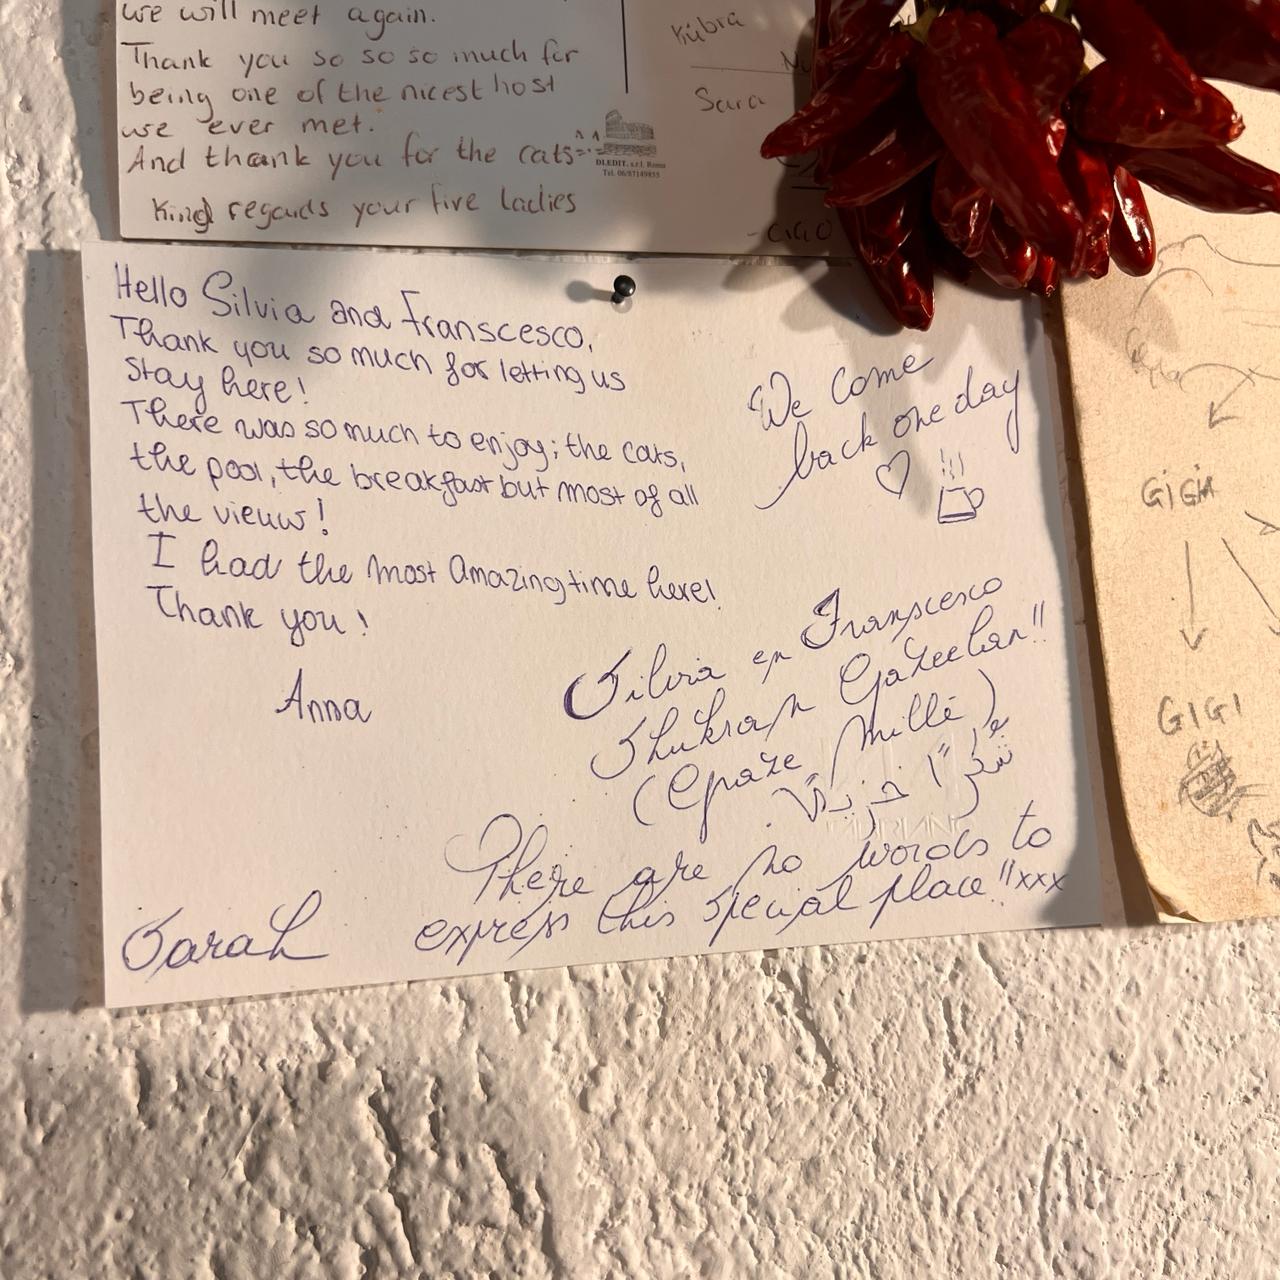 we will meet again.
Thank you so so so much for
being one of the nicest host
we ever met.
And thank you for the cats
Kind regards your five ladies
Kübra
Sara
- ciao
DLEDIT, s.r.l. Roma
Tel. 06/87149855
Hello Silvia and Franscesco,
Thank you so much for letting us
stay here!
There was so much to enjoy; the cats,
the pool, the breakfast but most of all
the vieuw!
I had the most amazing time here!
Thank you!
Anna
We come
back one day
Silvia en Franscesco
Shukran Gazeelan!!
(Graze Mille)
شكرًا جزيلاً
There are no words to
express this special place!! xxx
Sarah
GIGIA
GIGI